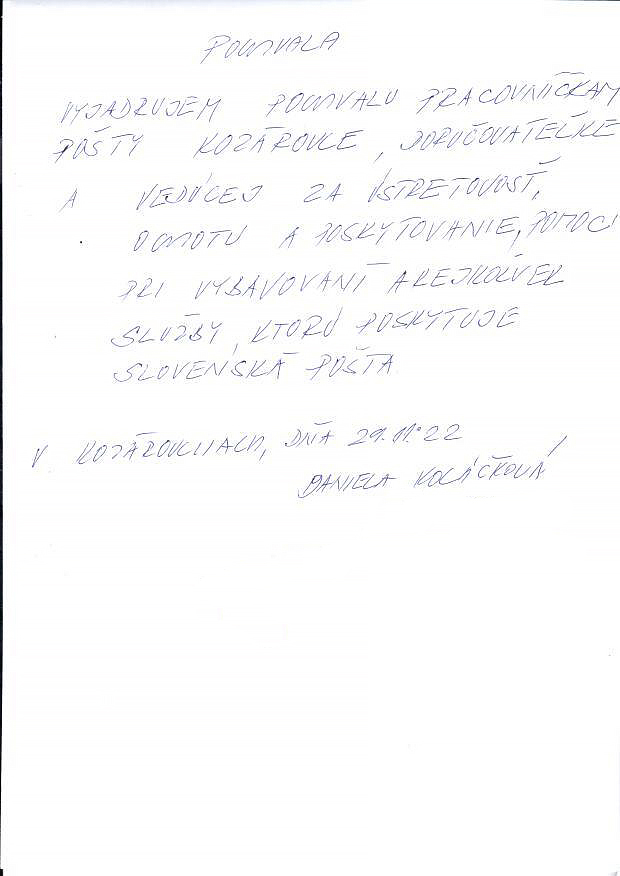 POCHVALA
VYJADRUJEM POCHVALU PRACOVNÍČKAM
POŠTY KOZÁROVCE, DORUČOVATEĽKE
A VEDÚCEJ ZA ÚSTRETOVOSŤ,
OCHOTU A POSKYTOVANIE, POMOCI
PRI VYBAVOVANÍ AKEJKOĽVEK
SLUŽBY, KTORÚ POSKYTUJE
SLOVENSKÁ POŠTA.
V KOZÁROVCIACH, DŇA 29.11.22
DANIELA KOLÁČKOVÁ